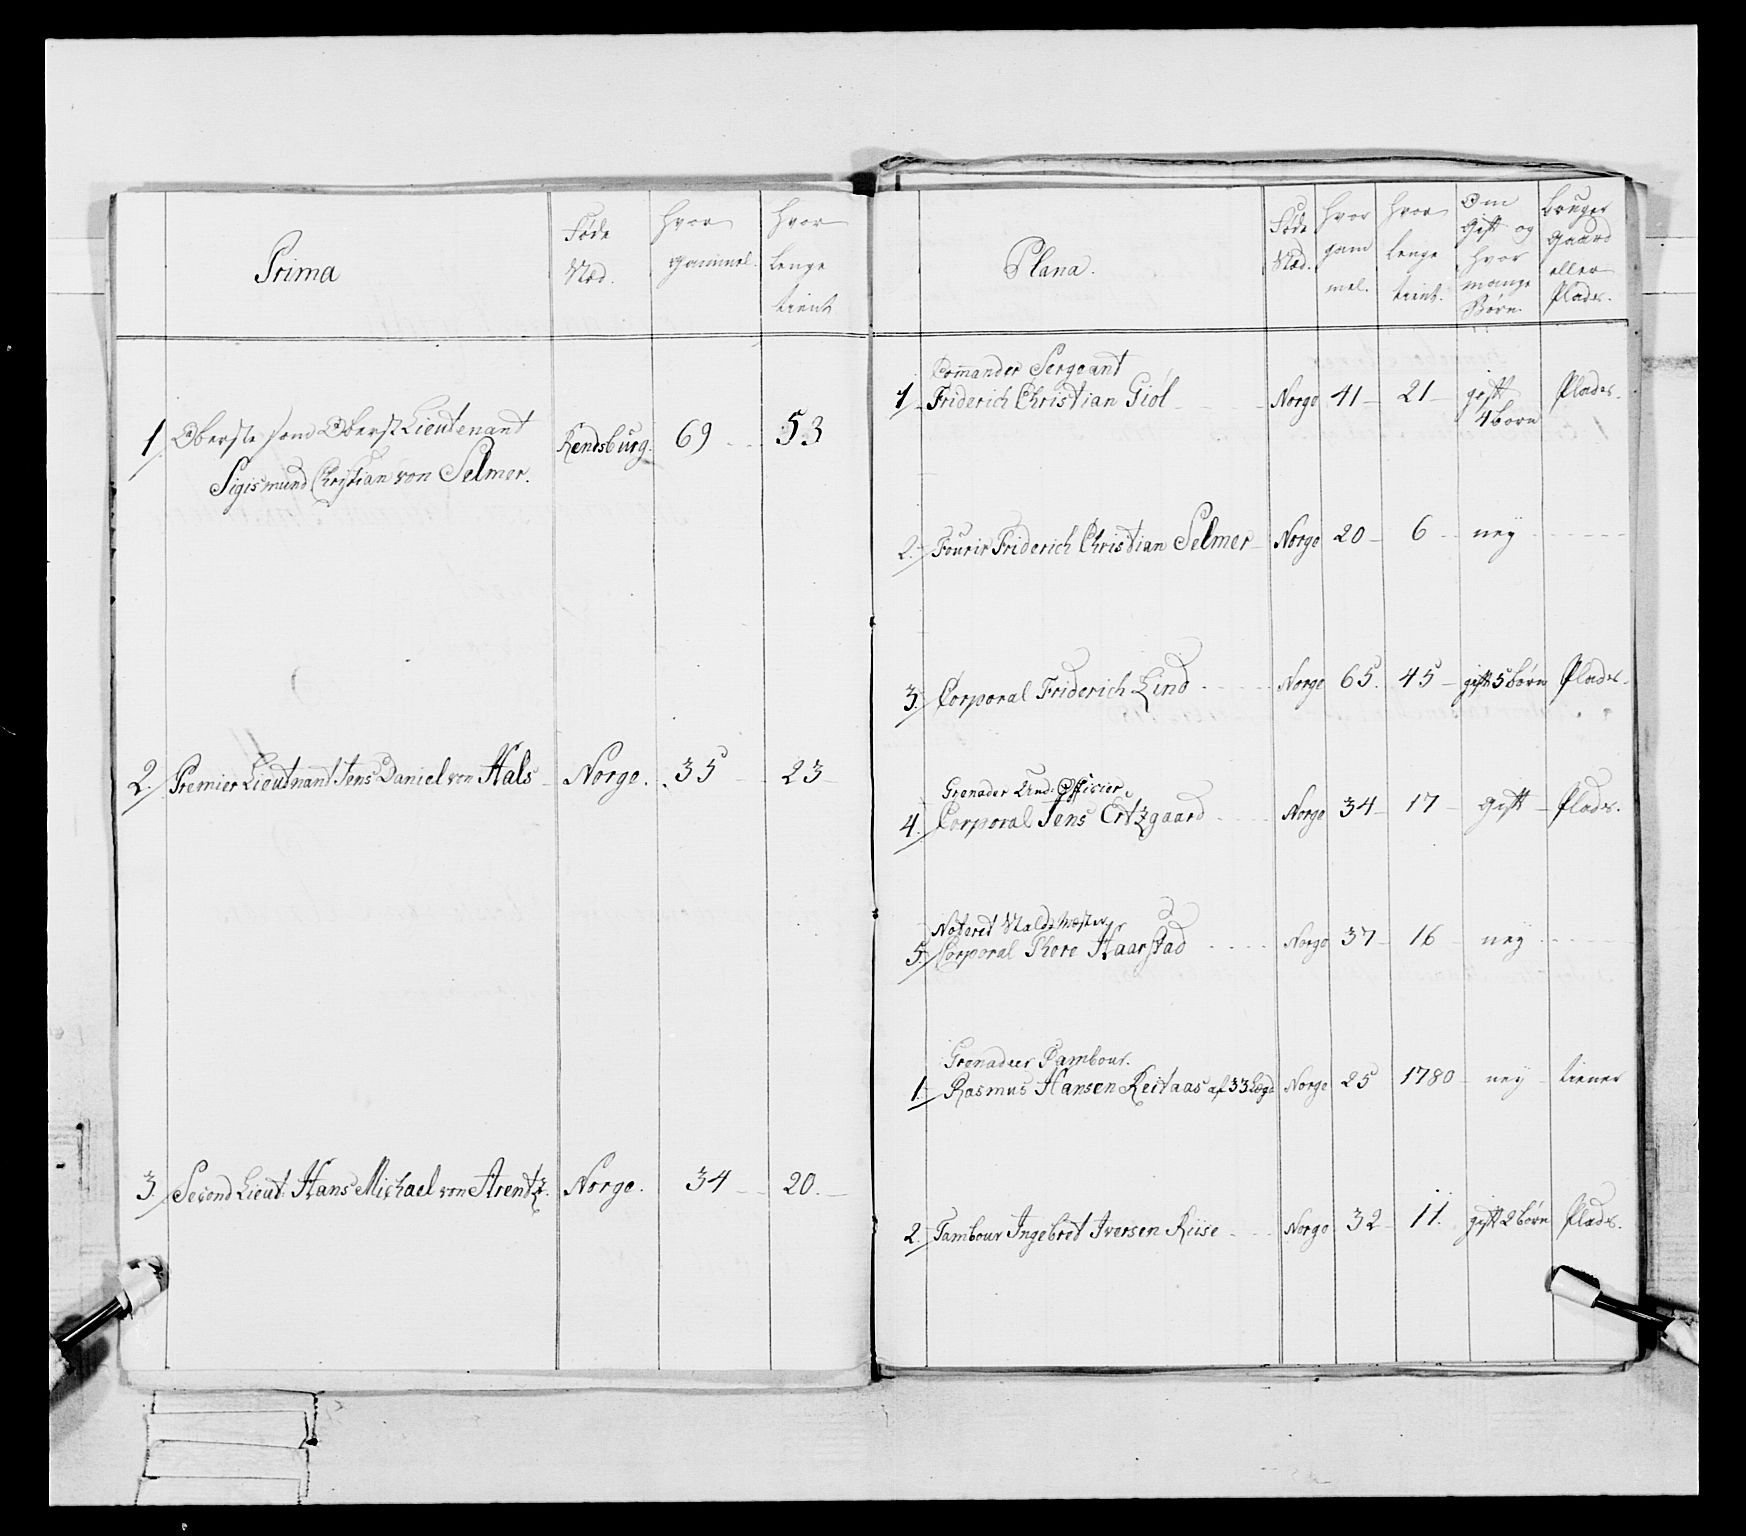 Prima
Føde
Stæd.
hvor
gammel.
hvor
lenge
tient
1. Oberste som Oberst Lieutenant
Sigismund Christian von Selmer.
Rendsburg. 69 53
2. Premier Lieutnant Jens Daniel von Hals Norge. 35 23
3. Second Lieut: Hans Michael von Arentz. Norge. 34 20.
Plana.
Føde
Stæd.
hvor
gam
mel.
hvor
lenge
tient.
Om
Gift og
hvor
mange
Børn.
bruger
Gaard
eller
Plads.
Commander Sergeant
1. Friderich Christian Giöl Norge 41 21 gift Plads.
4 børn
2. Fourir Friderich Christian Selmer Norge 20 6 ney
3. Corporal Friderich Lind Norge 65. 45 gift 5 børn Plads.
Grenader Und: Officier
4. Corporal Jens Ertzgaard Norge 34 17 gift Plads.
Noteret
5. Corporal Thore Haarstad Norge 37 16 ney
Grenadeer Tambour.
1. Rasmus Hansen Reitaas af 33 Lægd Norge 25 1780 ney tiener
2. Tambour Ingebret Iversen Riise Norge 32 11. gift 2 børn Plads.